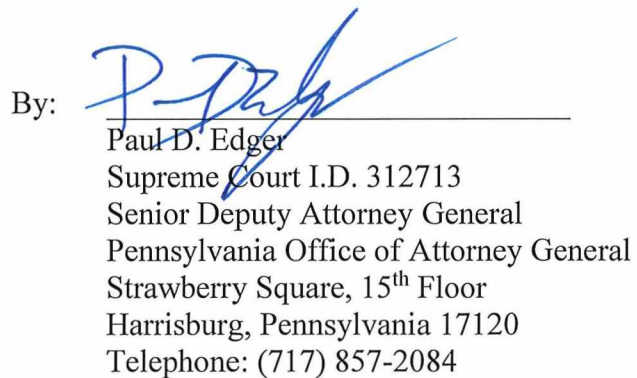 By:
Paul D. Edger
Supreme Court I.D. 312713
Senior Deputy Attorney General
Pennsylvania Office of Attorney General
Strawberry Square, 15th Floor
Harrisburg, Pennsylvania 17120
Telephone: (717) 857-2084